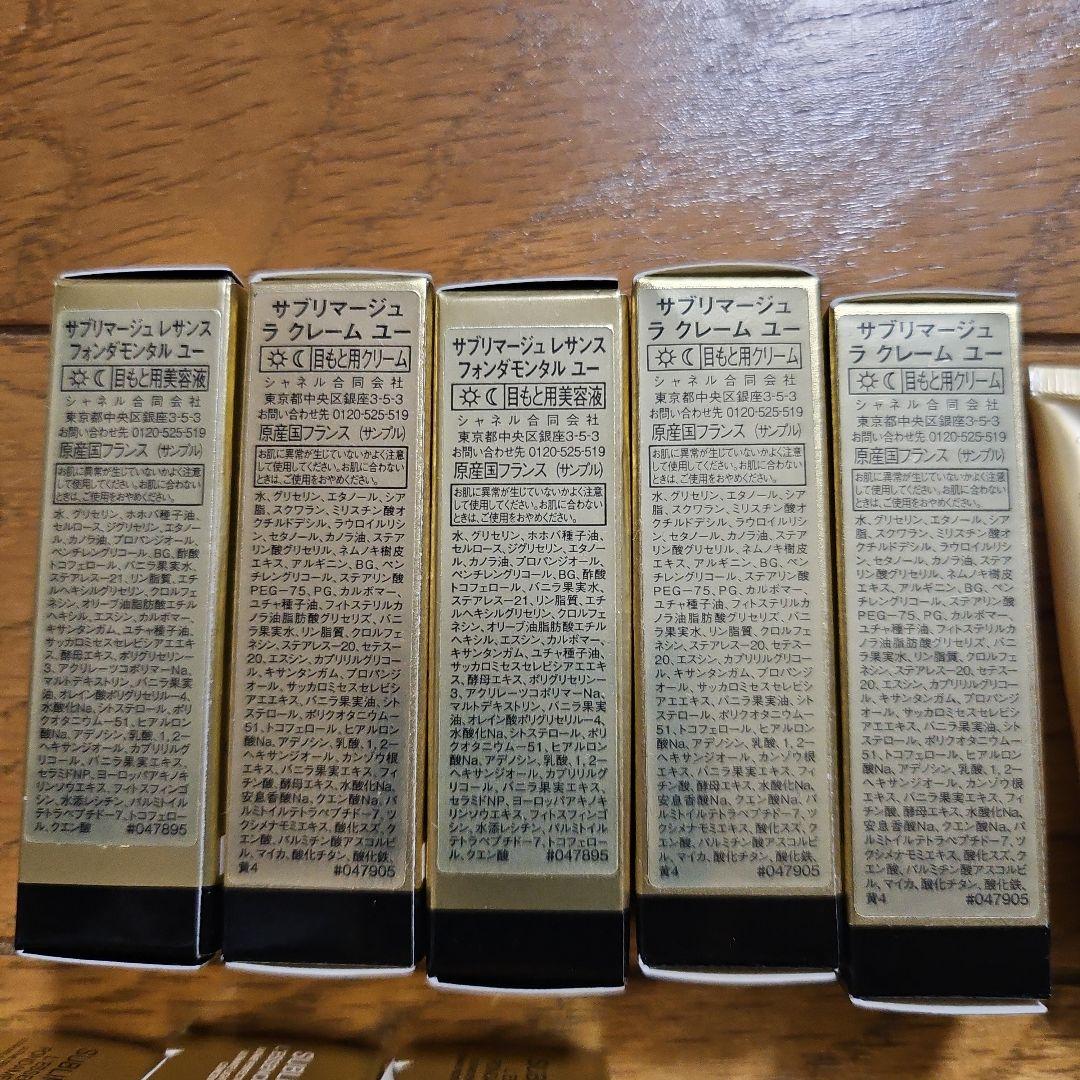 サブリマージュ レサンス
フォンダモンタル ユー
目もと用美容液
シャネル合同会社
東京都中央区銀座3-5-3
お問い合わせ先 0120-525-519
原産国フランス (サンプル)
お肌に異常が生じていないかよく注意
して使用してください。お肌に合わない
ときは、ご使用をおやめください。
水、グリセリン、ホホバ種子油、
セルロース、ジグリセリン、エタノー
ル、カノラ油、プロパンジオール、
ペンチレングリコール、BG、酢酸
トコフェロール、バニラ果実水、
ステアレス-21、リン脂質、エチ
ルヘキシルグリセリン、クロルフェ
ネシン、オリーブ油脂肪酸エチル
ヘキシル、エスシン、カルボマー、
キサンタンガム、ユチャ種子油、
サッカロミセスセレビシアエエキ
ス、酵母エキス、ポリグリセリン-
3、アクリレーツコポリマーNa、
マルトデキストリン、バニラ果実
油、オレイン酸ポリグリセリル-4、
水酸化Na、シトステロール、ポリ
クオタニウム-51、ヒアルロン
酸Na、アデノシン、乳酸、1,2-
ヘキサンジオール、カプリリルグ
リコール、バニラ果実エキス、
セラミドNP、ヨーロッパアキノキ
リンソウエキス、フィトスフィンゴ
シン、水添レシチン、パルミトイル
テトラペプチド-7、トコフェロー
ル、クエン酸 #047895
サブリマージュ
ラ クレーム ユー
目もと用クリーム
シャネル合同会社
東京都中央区銀座3-5-3
お問い合わせ先 0120-525-519
原産国フランス (サンプル)
お肌に異常が生じていないかよく注意
して使用してください。お肌に合わない
ときは、ご使用をおやめください。
水、グリセリン、エタノール、シア
脂、スクワラン、ミリスチン酸オ
クチルドデシル、ラウロイルリシ
ン、セタノール、カノラ油、ステア
リン酸グリセリル、ネムノキ樹皮
エキス、アルギニン、BG、ペン
チレングリコール、ステアリン酸
PEG-75、PG、カルボマー、
ユチャ種子油、フィトステリルカ
ノラ油脂肪酸グリセリズ、バニ
ラ果実水、リン脂質、クロルフェ
ネシン、ステアレス-20、セテス-
20、エスシン、カプリリルグリコー
ル、キサンタンガム、プロパンジ
オール、サッカロミセスセレビシ
アエエキス、バニラ果実油、シト
ステロール、ポリクオタニウム-
51、トコフェロール、ヒアルロン
酸Na、アデノシン、乳酸、1,2-
ヘキサンジオール、カンゾウ根
エキス、バニラ果実エキス、フィ
チン酸、酵母エキス、水酸化Na、
安息香酸Na、クエン酸Na、パ
ルミトイルテトラペプチド-7、ツ
クシメナモミエキス、酸化スズ、ク
エン酸、パルミチン酸アスコルビ
ル、マイカ、酸化チタン、酸化鉄、
黄4 #047905
サブリマージュ レサンス
フォンダモンタル ユー
目もと用美容液
シャネル合同会社
東京都中央区銀座3-5-3
お問い合わせ先 0120-525-519
原産国フランス (サンプル)
お肌に異常が生じていないかよく注意
して使用してください。お肌に合わない
ときは、ご使用をおやめください。
水、グリセリン、ホホバ種子油、
セルロース、ジグリセリン、エタノー
ル、カノラ油、プロパンジオール、
ペンチレングリコール、BG、酢酸
トコフェロール、バニラ果実水、
ステアレス-21、リン脂質、エチ
ルヘキシルグリセリン、クロルフェ
ネシン、オリーブ油脂肪酸エチル
ヘキシル、エスシン、カルボマー、
キサンタンガム、ユチャ種子油、
サッカロミセスセレビシアエエキ
ス、酵母エキス、ポリグリセリン-
3、アクリレーツコポリマーNa、
マルトデキストリン、バニラ果実
油、オレイン酸ポリグリセリル-4、
水酸化Na、シトステロール、ポリ
クオタニウム-51、ヒアルロン
酸Na、アデノシン、乳酸、1,2-
ヘキサンジオール、カプリリルグ
リコール、バニラ果実エキス、
セラミドNP、ヨーロッパアキノキ
リンソウエキス、フィトスフィンゴ
シン、水添レシチン、パルミトイル
テトラペプチド-7、トコフェロー
ル、クエン酸 #047895
サブリマージュ
ラ クレーム ユー
目もと用クリーム
シャネル合同会社
東京都中央区銀座3-5-3
お問い合わせ先 0120-525-519
原産国フランス (サンプル)
お肌に異常が生じていないかよく注意
して使用してください。お肌に合わない
ときは、ご使用をおやめください。
水、グリセリン、エタノール、シア
脂、スクワラン、ミリスチン酸オ
クチルドデシル、ラウロイルリシ
ン、セタノール、カノラ油、ステア
リン酸グリセリル、ネムノキ樹皮
エキス、アルギニン、BG、ペン
チレングリコール、ステアリン酸
PEG-75、PG、カルボマー、
ユチャ種子油、フィトステリルカ
ノラ油脂肪酸グリセリズ、バニ
ラ果実水、リン脂質、クロルフェ
ネシン、ステアレス-20、セテス-
20、エスシン、カプリリルグリコー
ル、キサンタンガム、プロパンジ
オール、サッカロミセスセレビシ
アエエキス、バニラ果実油、シト
ステロール、ポリクオタニウム-
51、トコフェロール、ヒアルロン
酸Na、アデノシン、乳酸、1,2-
ヘキサンジオール、カンゾウ根
エキス、バニラ果実エキス、フィ
チン酸、酵母エキス、水酸化Na、
安息香酸Na、クエン酸Na、パ
ルミトイルテトラペプチド-7、ツ
クシメナモミエキス、酸化スズ、ク
エン酸、パルミチン酸アスコルビ
ル、マイカ、酸化チタン、酸化鉄、
黄4 #047905
サブリマージュ
ラ クレーム ユー
目もと用クリーム
シャネル合同会社
東京都中央区銀座3-5-3
お問い合わせ先 0120-525-519
原産国フランス (サンプル)
お肌に異常が生じていないかよく注意
して使用してください。お肌に合わない
ときは、ご使用をおやめください。
水、グリセリン、エタノール、シア
脂、スクワラン、ミリスチン酸オ
クチルドデシル、ラウロイルリシ
ン、セタノール、カノラ油、ステア
リン酸グリセリル、ネムノキ樹皮
エキス、アルギニン、BG、ペン
チレングリコール、ステアリン酸
PEG-75、PG、カルボマー、
ユチャ種子油、フィトステリルカ
ノラ油脂肪酸グリセリズ、バニ
ラ果実水、リン脂質、クロルフェ
ネシン、ステアレス-20、セテス-
20、エスシン、カプリリルグリコー
ル、キサンタンガム、プロパンジ
オール、サッカロミセスセレビシ
アエエキス、バニラ果実油、シト
ステロール、ポリクオタニウム-
51、トコフェロール、ヒアルロン
酸Na、アデノシン、乳酸、1,2-
ヘキサンジオール、カンゾウ根
エキス、バニラ果実エキス、フィ
チン酸、酵母エキス、水酸化Na、
安息香酸Na、クエン酸Na、パ
ルミトイルテトラペプチド-7、ツ
クシメナモミエキス、酸化スズ、ク
エン酸、パルミチン酸アスコルビ
ル、マイカ、酸化チタン、酸化鉄、
黄4 #047905